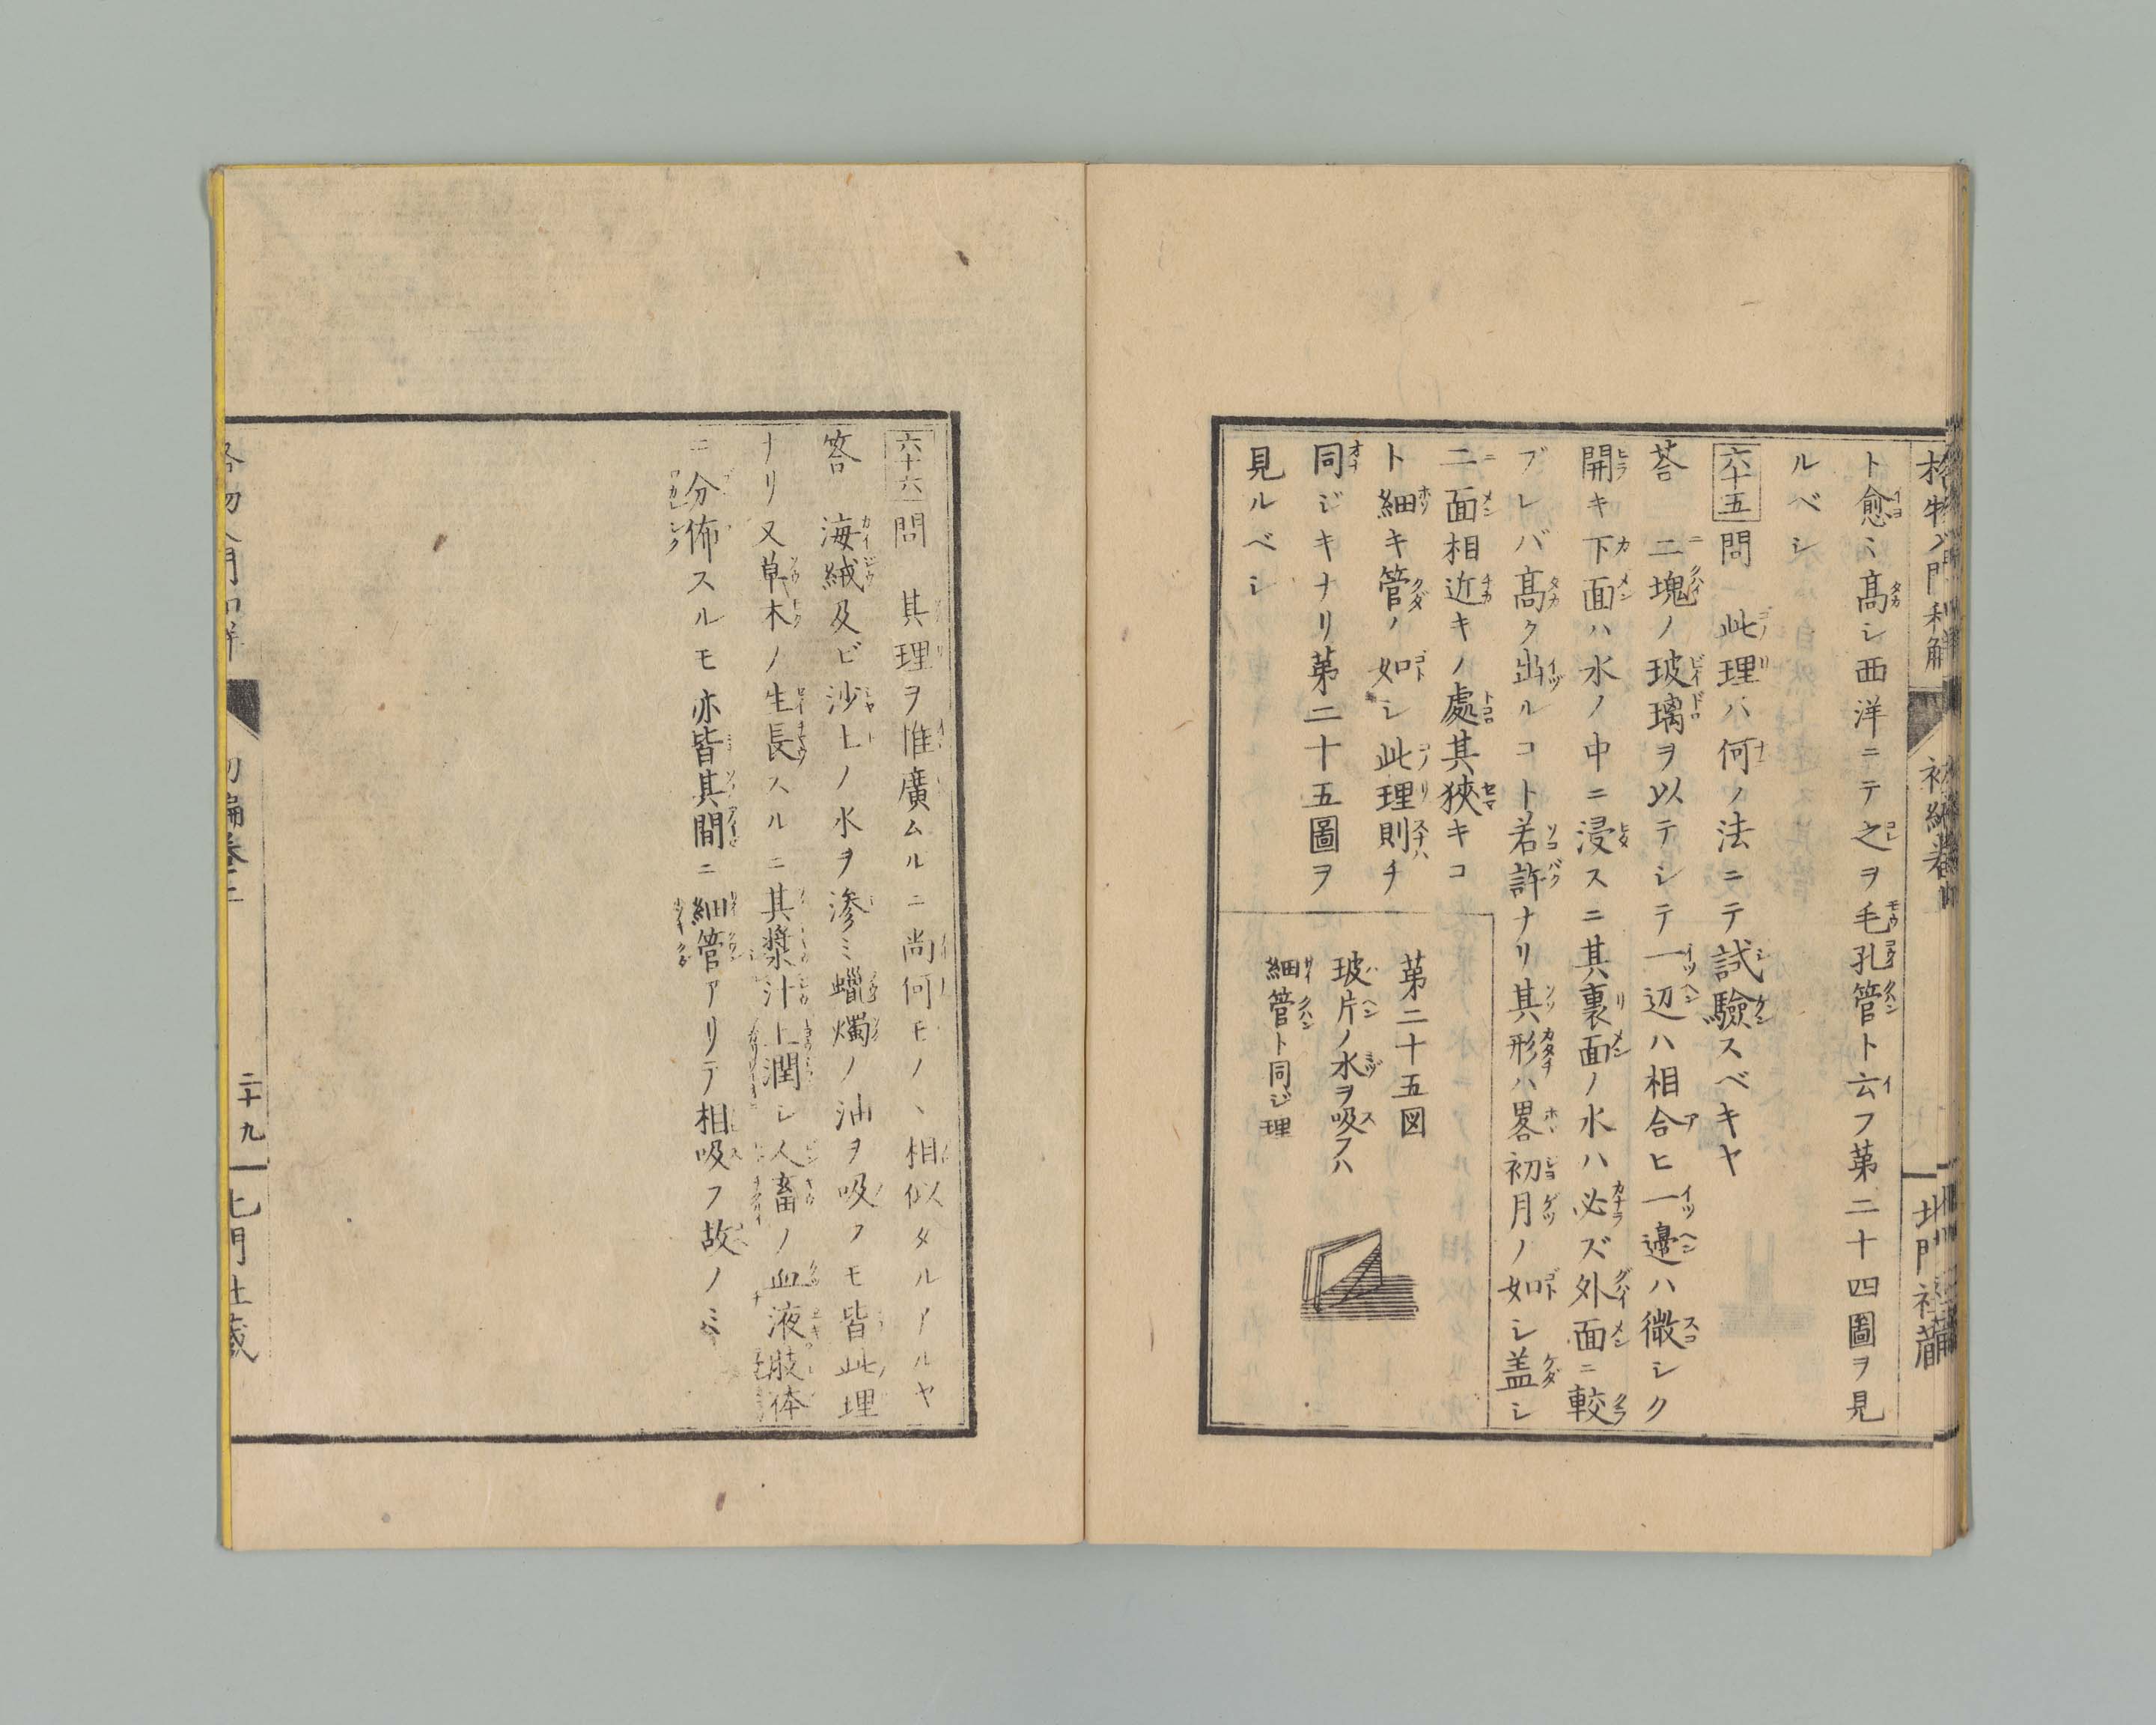 格物入門和解
初編巻
北門社蔵
ト愈〻高シ西洋ニテ之ヲ毛孔管ト云フ第二十四圖ヲ見
ルベシ
六十五問 此理ハ何ノ法ニテ試驗スベキヤ
荅 二塊ノ玻璃ヲ以テシテ一辺ハ相合ヒ一邊ハ微シク
開キ下面ハ水ノ中ニ浸スニ其裏面ノ水ハ必ズ外面ニ較
ブレバ髙ク出ルコト若許ナリ其形ハ畧初月ノ如シ盖シ
二面相近キノ處其狹キコ
ト細キ管ノ如シ此理則チ
同ジキナリ第二十五圖ヲ
見ルベシ
第二十五図
玻片ノ水ヲ吸フハ
細管ト同ジ理
六十六問 其理ヲ惟廣ムルニ尚何モノヽ相似タルアルヤ
答 海絨及ビ沙土ノ水ヲ滲ミ蠟燭ノ油ヲ吸フモ皆此理
ナリ又草木ノ生長スルニ其漿汁上潤シ人畜ノ血液肢体
ニ分佈スルモ亦皆其間ニ細管アリテ相吸フ故ノミ
格物入門和解
初編巻二
二十九
北門社蔵